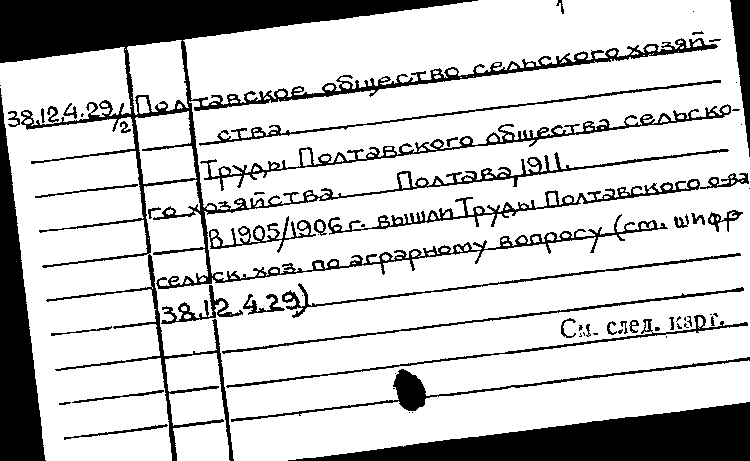 1
38.12.4.29/2 Полтавское общество сельского хозяй-
ства.
Труды Полтавского общества сельско-
го хозяйства. Полтава, 1911.
В 1905/1906 г. вышли Труды Полтавского о-ва
сельск. хоз. по аграрному вопросу (ст. шифр
38.12.4.29).
См. след. карт.